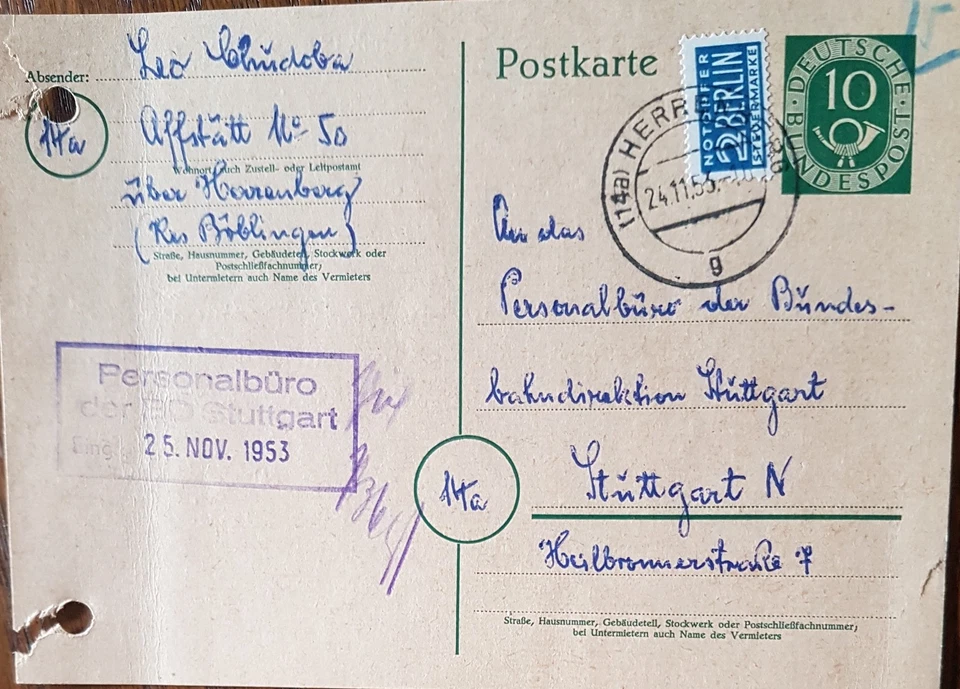 Absender: Leo Chudoba
14a
Affstätt No 50
Wohnort, auch Zustell- oder Leitpostamt
über Herrenberg
(Krs Böblingen)
Straße, Hausnummer, Gebäudeteil, Stockwerk oder
Postschließfachnummer;
bei Untermietern auch Name des Vermieters
Personalbüro
der BD Stuttgart
Eing. 25. NOV. 1953
Postkarte
NOTOPFER
2 BERLIN
STEUERMARKE
DEUTSCHE BUNDESPOST
10
(14a) HERRENBERG
24.11.53.
g
15
An das
Personalbüro der Bundes-
bahndirektion Stuttgart
14a
Stuttgart N
Heilbronnerstraße 7
Straße, Hausnummer, Gebäudeteil, Stockwerk oder Postschließfachnummer;
bei Untermietern auch Name des Vermieters